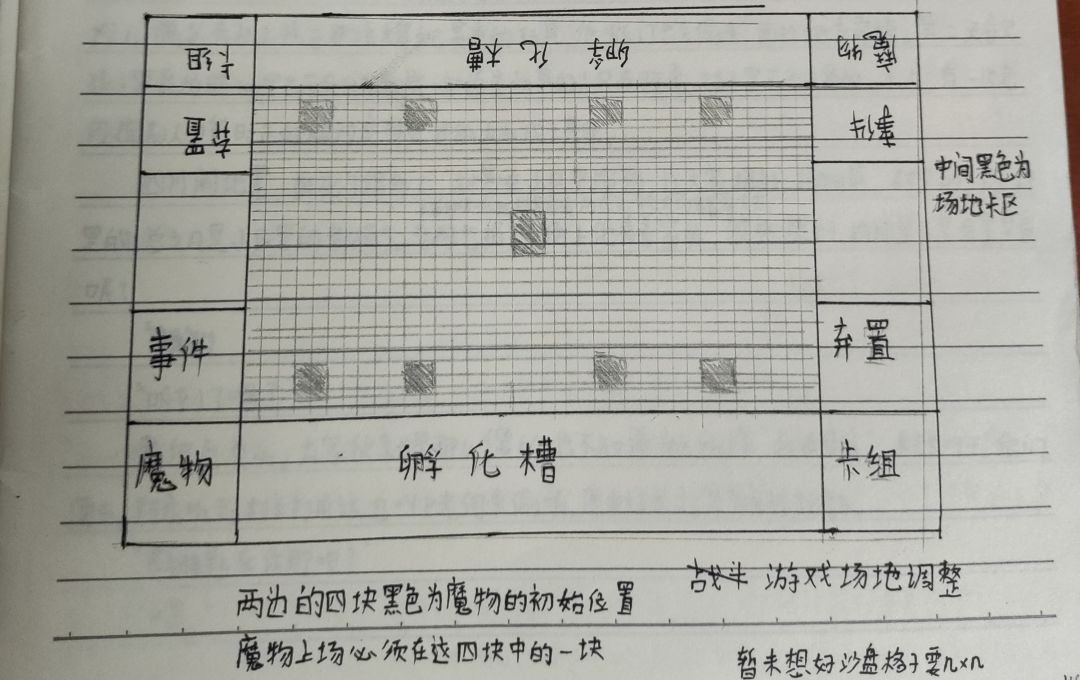 卡组 孵化槽 魔物
弃置 事件
中间黑色为
场地卡区
事件 弃置
魔物 孵化槽 卡组
战斗 游戏场地调整
两边的四块黑色为魔物的初始位置
魔物上场必须在这四块中的一块
暂未想好沙盘格子要n×n